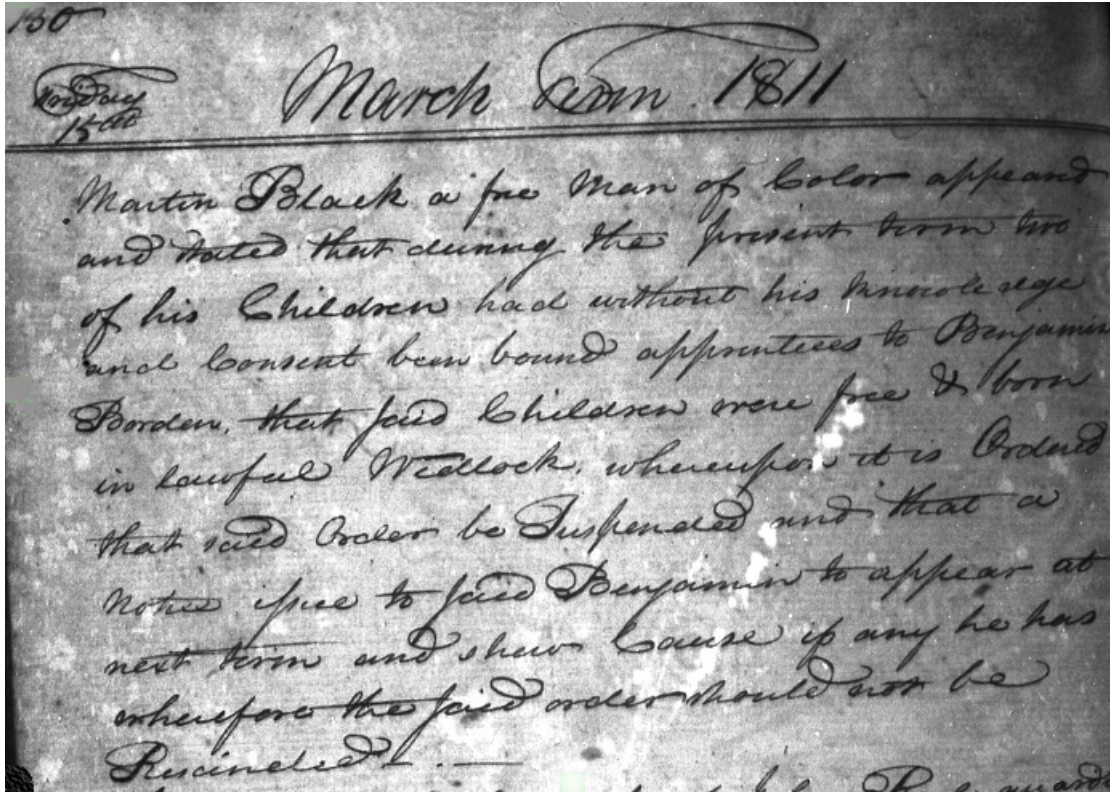 130
March Term 1811
15th
Martin Black a free Man of Color appeard
and stated that during the present term two
of his Children had without his knowledge
and Consent been bound apprentices to Benjamin
Borden, that said Children were free & born
in lawful Wedlock, whereupon it is Ordered
that said Order be Suspended and that a
Notice issue to said Benjamin to appear at
next term and shew Cause if any he has
wherefore the said order should not be
Rescinded